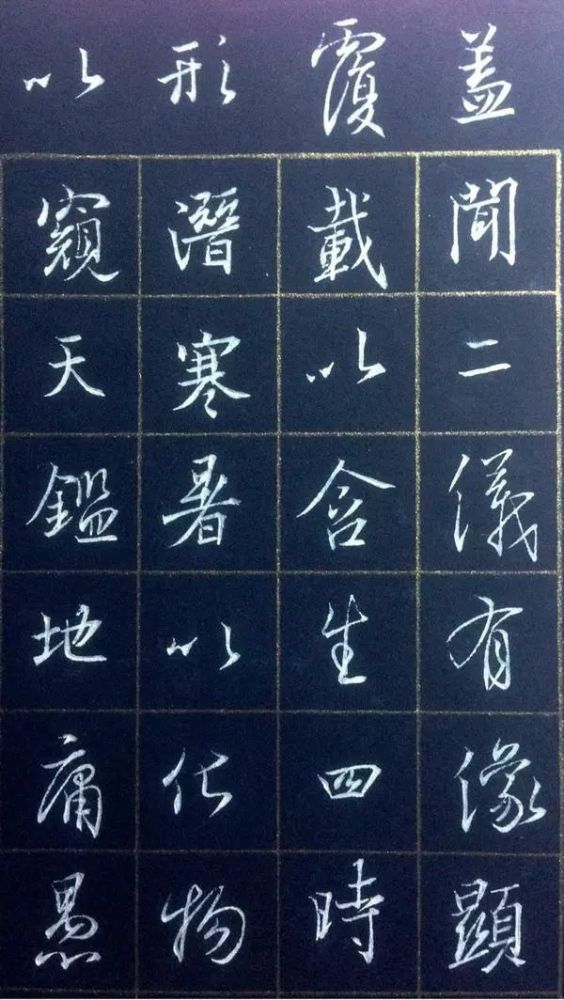 盖聞二儀有像顯
覆載以含生四時
形潛寒暑以化物
以窺天鑑地庸愚